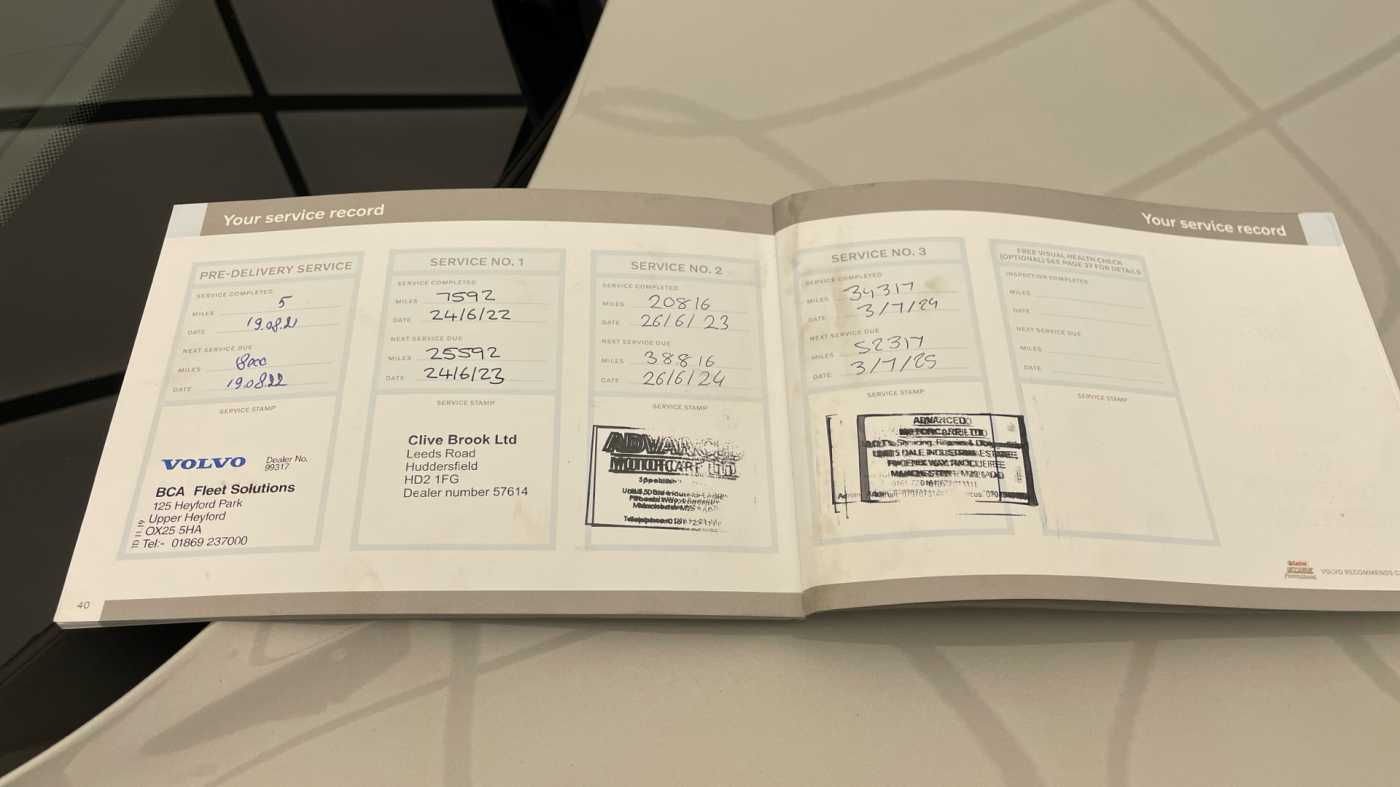 Your service record
PRE-DELIVERY SERVICE
SERVICE COMPLETED
MILES 5
DATE 19.08.21
NEXT SERVICE DUE
MILES 8000
DATE 19.08.22
SERVICE STAMP
VOLVO Dealer No.
99317
BCA Fleet Solutions
125 Heyford Park
Upper Heyford
OX25 5HA
Tel:- 01869 237000
SERVICE NO. 1
SERVICE COMPLETED
MILES 7592
DATE 24/6/22
NEXT SERVICE DUE
MILES 25592
DATE 24/6/23
SERVICE STAMP
Clive Brook Ltd
Leeds Road
Huddersfield
HD2 1FG
Dealer number 57614
SERVICE NO. 2
SERVICE COMPLETED
MILES 20816
DATE 26/6/23
NEXT SERVICE DUE
MILES 38816
DATE 26/6/24
SERVICE STAMP
MOTORCARE LTD
40
Your service record
SERVICE NO. 3
SERVICE COMPLETED
MILES 34317
DATE 3/7/24
NEXT SERVICE DUE
MILES 52317
DATE 3/7/25
SERVICE STAMP
ADVANCED
MOTORCARE LTD
FREE VISUAL HEALTH CHECK
(OPTIONAL) SEE PAGE 37 FOR DETAILS
INSPECTION COMPLETED
MILES
DATE
NEXT SERVICE DUE
MILES
DATE
SERVICE STAMP
VOLVO RECOMMENDS